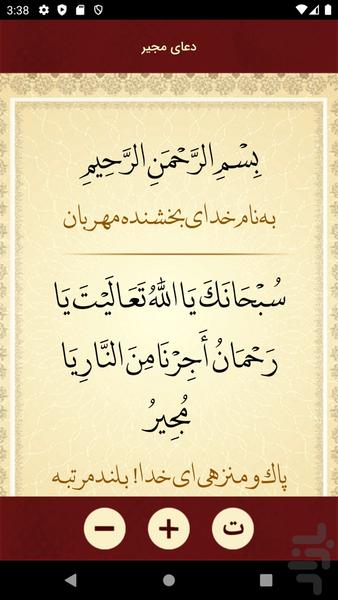 3:38
دعای مجیر
بِسْمِ الرَّحْمَنِ الرَّحِيمِ
به نام خدای بخشنده مهربان
سُبْحَانَكَ يَا اللَّهُ تَعَالَيْتَ يَا
رَحْمَانُ أَجِرْنَا مِنَ النَّارِ يَا
مُجِيرُ
پاک و منزهی ای خدا! بلند مرتبه
− + ت
بازار